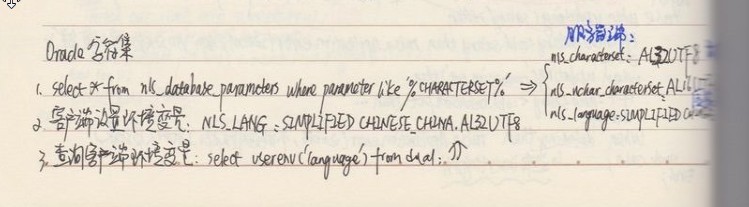 Oracle 字符集
服务器端：
nls_characterset: AL32UTF8
1. select * from nls_database_parameters where parameter like '%CHARACTERSET%' ⇒
nls_nchar_characterset: AL
nls_language: SIMPLIFIED
2. 客户端设置环境变量: NLS_LANG: SIMPLIFIED CHINESE_CHINA.AL32UTF8
3. 查询客户端环境变量: select userenv('language') from dual;